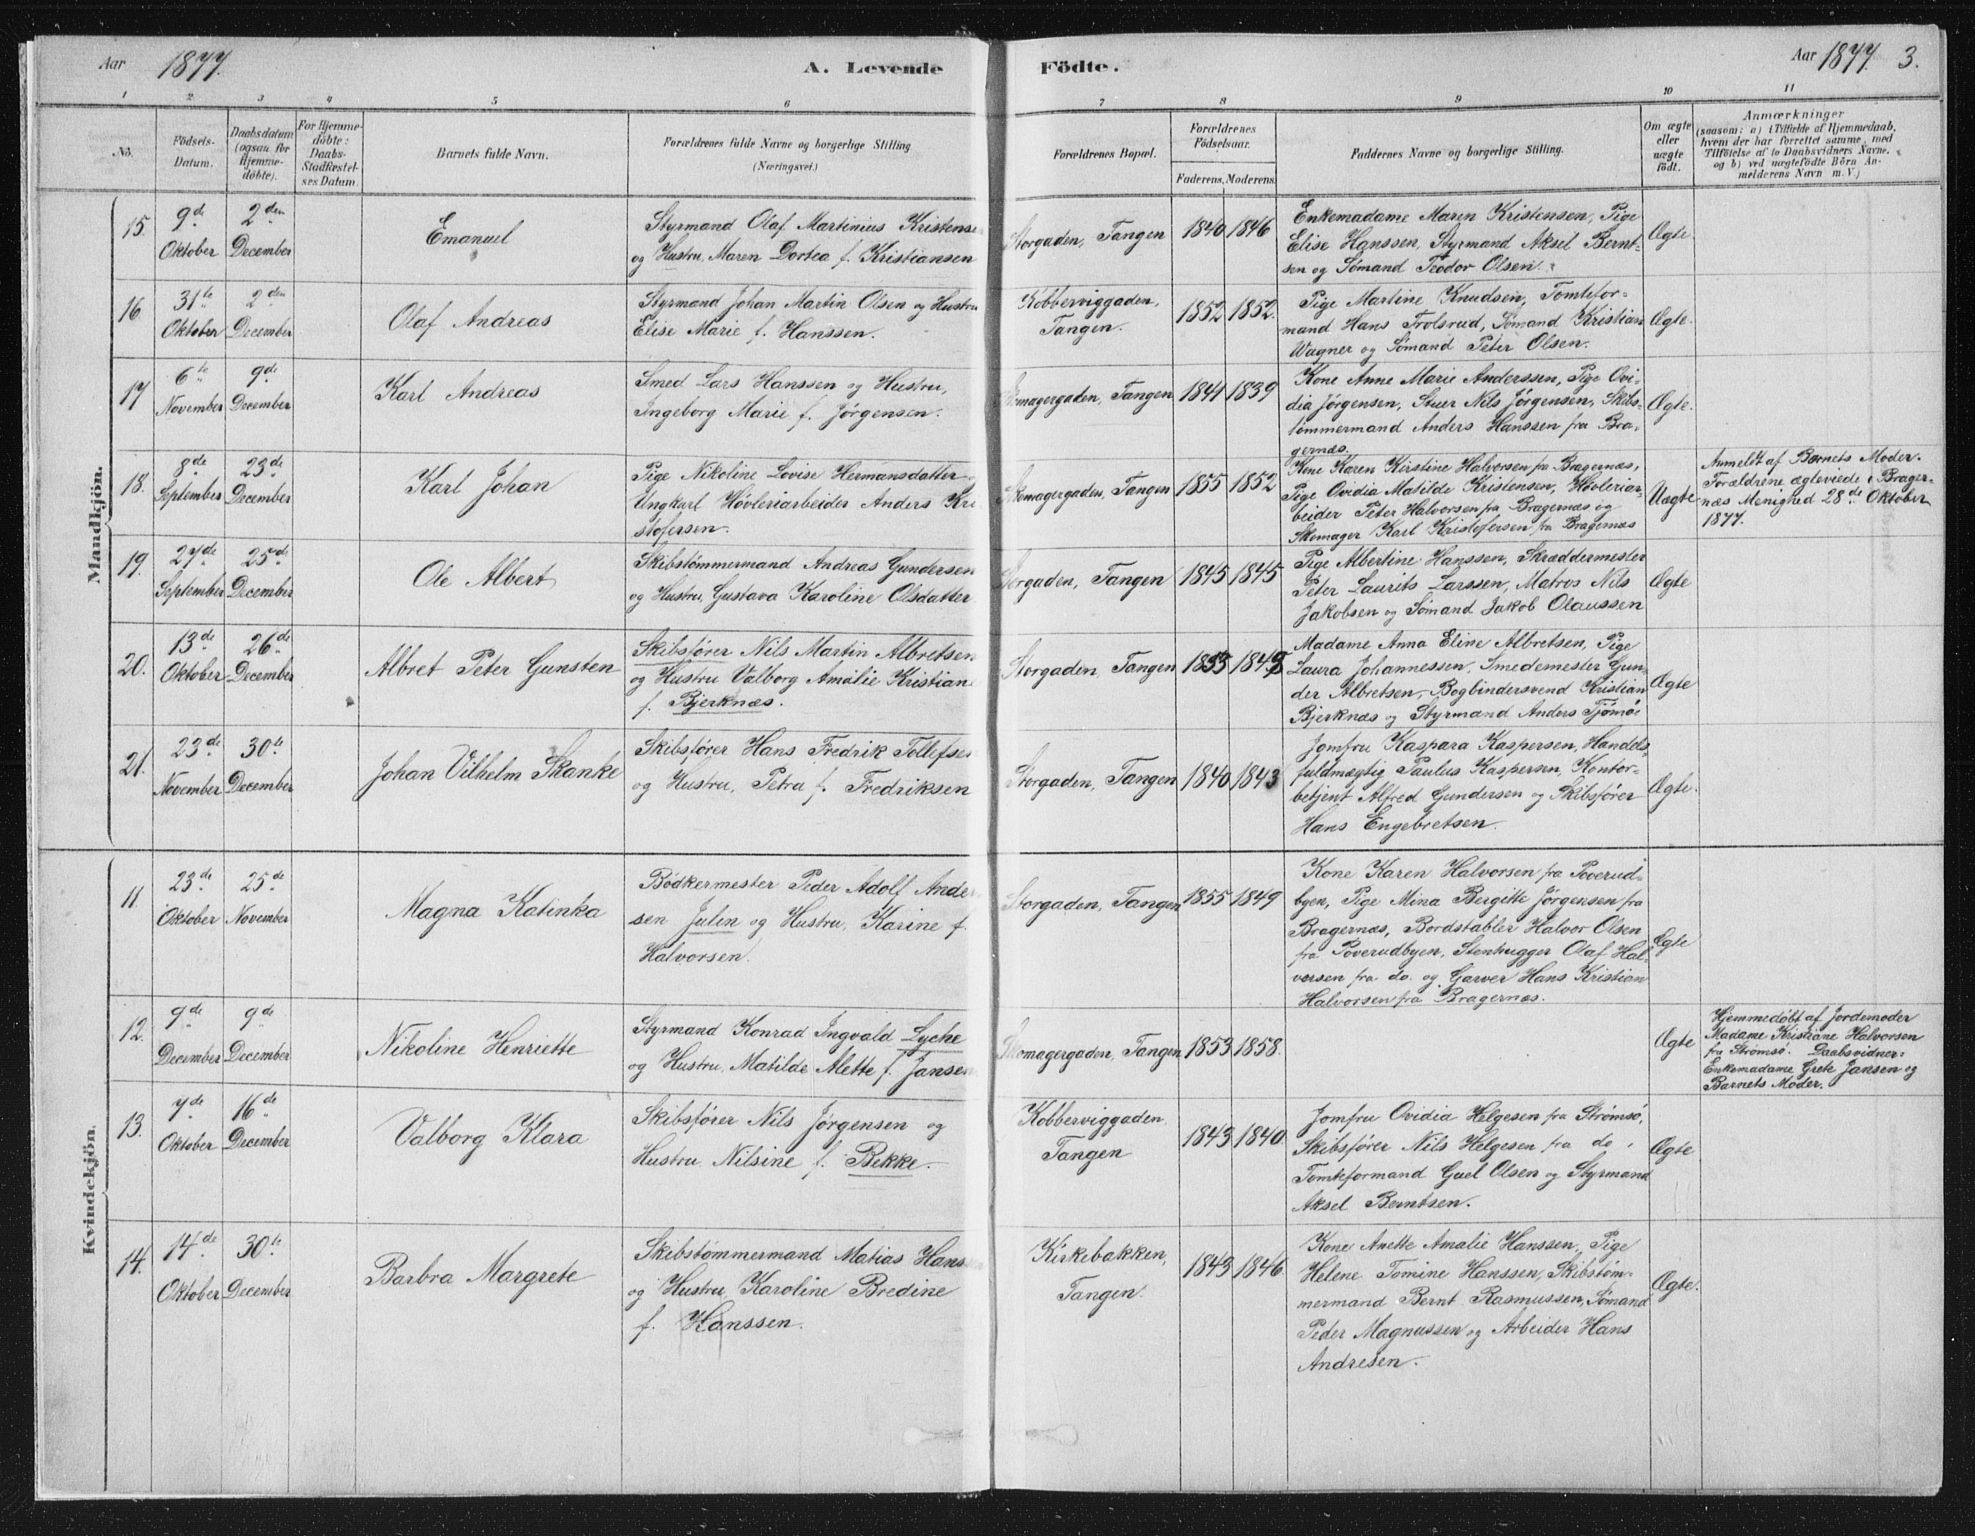 Aar 1877. A. Levende Födte. Aar 1877. 3.
1 2 3 4 5 6 7 8 9 10 11
No.
Födsels-
Datum.
Daabsdatum
(ogsaa for
Hjemme-
döbte).
For Hjemme-
döbte:
Daabs-
Stadfæstel-
ses Datum.
Barnets fulde Navn.
Forældrenes fulde Navne og borgerlige Stilling
(Næringsvei.)
Forældrenes Bopæl.
Forældrenes
Födselsaar.
Faderens. Moderens.
Faddernes Navne og borgerlige Stilling.
Om ægte
eller
uægte
födt.
Anmærkninger
(saasom: a) i Tilfælde af Hjemmedaab,
hvem der har forrettet samme, med
Tilföielse af to Daabsvidners Navne.
og b) ved uægtefödte Börn An-
melderens Navn m.V.)
Mandkjön.
15. 9de Oktober
2den December
Emanuel
Styrmand Olaf Martinius Kristense
og Hustru, Maren Dortea f. Kristiansen
Storgaden, Tangen
1840 1846
Enkemadame Maren Kristensen, Pige
Elise Hanssen, Styrmand Aksel Bernt-
sen og Sømand Teodor Olsen.
Ægte.
16 31te Oktober
2den December
Olaf Andreas
Styrmand Johan Martin Olsen og Hustru
Elise Marie f. Hanssen.
Kobberviggaden,
Tangen.
1852 1852.
Pige Martine Knudsen, Tomtefor-
mand Hans Trolsrud, Sømand Kristian
Wagner og Sømand Peter Olsen.
Ægte.
17 6te November
9de December
Karl Andreas
Smed Lars Hanssen og Hustru,
Ingeborg Marie f. Jørgensen.
Skomagergaden, Tangen
1841 1839
Kone Anne Marie Anderssen, Pige Ovi-
dia Jørgensen, Stuer Nils Jørgensen, Skibs-
tømmermand Anders Hanssen fra Bra-
gernæs.
Ægte.
18. 8de September
23de December
Karl Johan
Pige Nikoline Lovise Hermansdatter
Ungkarl Høvleriarbeider Anders Kri
stofersen.
Skomagergaden, Tangen
1855 1852
Kone Karen Kirstine Halvorsen fra Bragernæs,
Pige Ovidia Matilde Kristensen, Høvleriar-
beider Peter Halvorsen fra Bragernæs og
Skomager Karl Kristofersen fra Bragernæs
Uægte
Anmeldt af Barnets Moder.
Forældrene ægteviede i Brager-
næs Menighed 28de Oktober
1877.
19. 27de September
25de December
Ole Albert
Skibstømmermand Andreas Gundersen
og Hustru, Gustava Karoline Olsdatter
Storgaden, Tangen
1845 1845
Pige Albertine Hanssen, Skræddermester
Peter Laurits Larssen, Matros Nils
Jakobsen og Sømand Jakob Olaussen
Ægte
20. 13de Oktober
26de December
Albret Peter Gunsten
Skibsfører Nils Martin Albretsen
og Hustru Valborg Amalie Kristian
f. Bjerknæs.
Storgaden, Tangen
Madame Anna Eline Albretsen, Pige
Laura Johannessen, Smedemester Gun-
der Albretsen, Bogbindersvend Kristian
Bjerknæs og Styrmand Anders Tjømøe
Ægte
21. 23de November
30te December
Johan Vilhelm Skanke
Skibsfører Hans Fredrik Tollefse
og Hustru, Petra f. Fredriksen
Storgaden, Tangen
1840 1843
Jomfru Kaspara Kaspersen, Handels-
fuldmægtig Paulus Kaspersen, Kontor-
betjent Alfred Gundersen og Skibsfører
Hans Engebretsen.
Ægte.
Kvindekjön.
11. 23de Oktober
25de November
Magna Katinka
Bødkermester Peder Adolf Ander
sen Julin og Hustru, Karine f.
Halvorsen.
Storgaden, Tangen
1855 1849
Kone Karen Halvorsen fra Poverud-
byen, Pige Mina Bergitte Jørgensen fra
Bragernæs, Bordstabler Halvor Olsen
fra Poverudbyen, Stenhugger Olaf Hal-
vorsen fra do. og Garver Hans Kristian
Halvorsen fra Bragernæs.
Ægte
12. 9de December
9de December
Nikoline Henriette
Styrmand Konrad Ingvald Lyche
og Hustru, Matilde Alette f. Jansen
Skomagergaden, Tangen
1853 1858.
Ægte
Hjemmedøbt af Jordemoder
Madame Kristiane Halvorsen
fra Strømsø. Daabsvidner:
Enkemadame Grete Jansen og
Barnets Moder.
13. 7de Oktober
16de December
Valborg Klara
Skibsfører Nils Jørgensen og
Hustru Nilsine f. Bekke.
Kobberviggaden,
Tangen
1843 1840
Jomfru Ovidia Helgesen fra Strømsø,
Skibsfører Nils Helgesen fra do,
Tomteformand Guel Olsen og Styrmand
Aksel Berntsen.
Ægte
14. 14de Oktober
30te December
Barbra Margrete
Skibstømmermand Matias Hans
og Hustru, Karoline Bredine
f. Hanssen.
Kirkebakken,
Tangen.
1843 1846
Kone Anette Amalie Hanssen, Pige
Helene Tomine Hanssen, Skibstøm-
mermand Bernt Rasmussen, Sømand
Peder Magnussen og Arbeider Hans
Andresen.
Ægte.